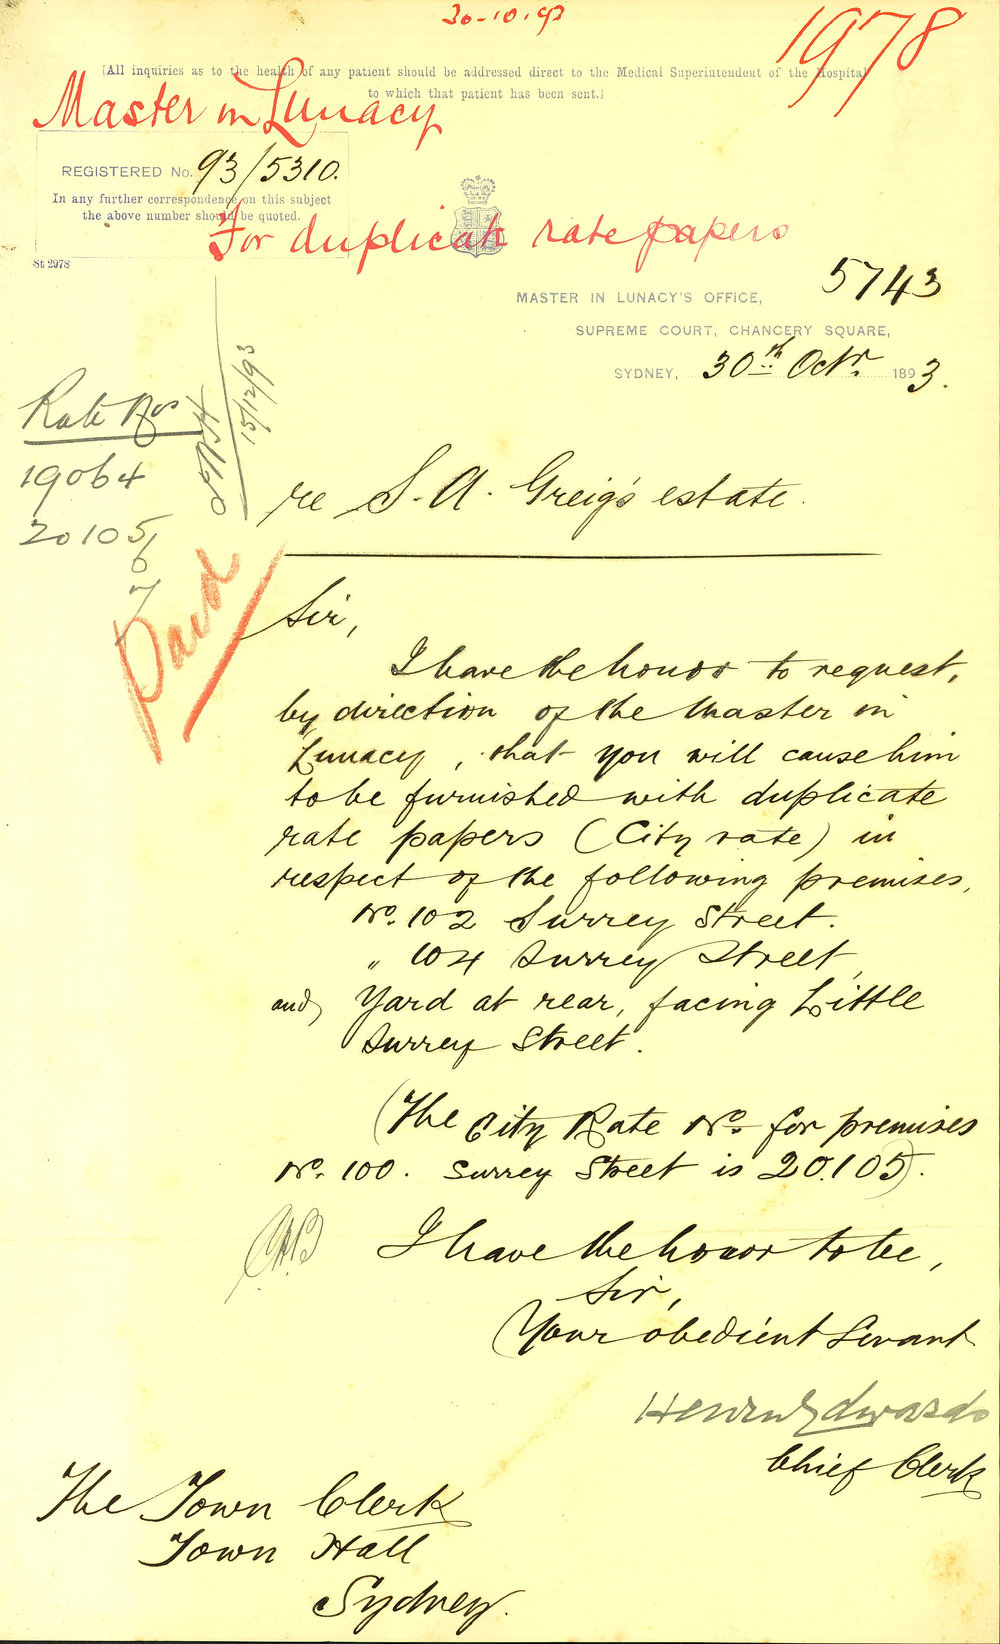 30.10.93
1978
[All inquiries as to the health of any patient should be addressed direct to the Medical Superintendent of the Hospital
to which that patient has been sent.]
Master in Lunacy
REGISTERED No. 93/5310.
In any further correspondence on this subject
the above number should be quoted.
For duplicate rate papers
St 2978
5743
MASTER IN LUNACY'S OFFICE,
SUPREME COURT, CHANCERY SQUARE,
SYDNEY, 30th Octr. 1893.
Rate Nos
19064
20105
6
7
15/12/93
Paid
re S. A. Greig's estate.
Sir,
I have the honor to request,
by direction of the Master in
Lunacy, that you will cause him
to be furnished with duplicate
rate papers (City rate) in
respect of the following premises,
No. 102 Surrey Street.
" 104 Surrey Street,
and Yard at rear, facing Little
Surrey Street.
(The City Rate No. for premises
No. 100. Surrey Street is 20.105).
I have the honor to be,
Sir,
Your obedient Servant
Henry Edwards
Chief Clerk
The Town Clerk
Town Hall
Sydney.